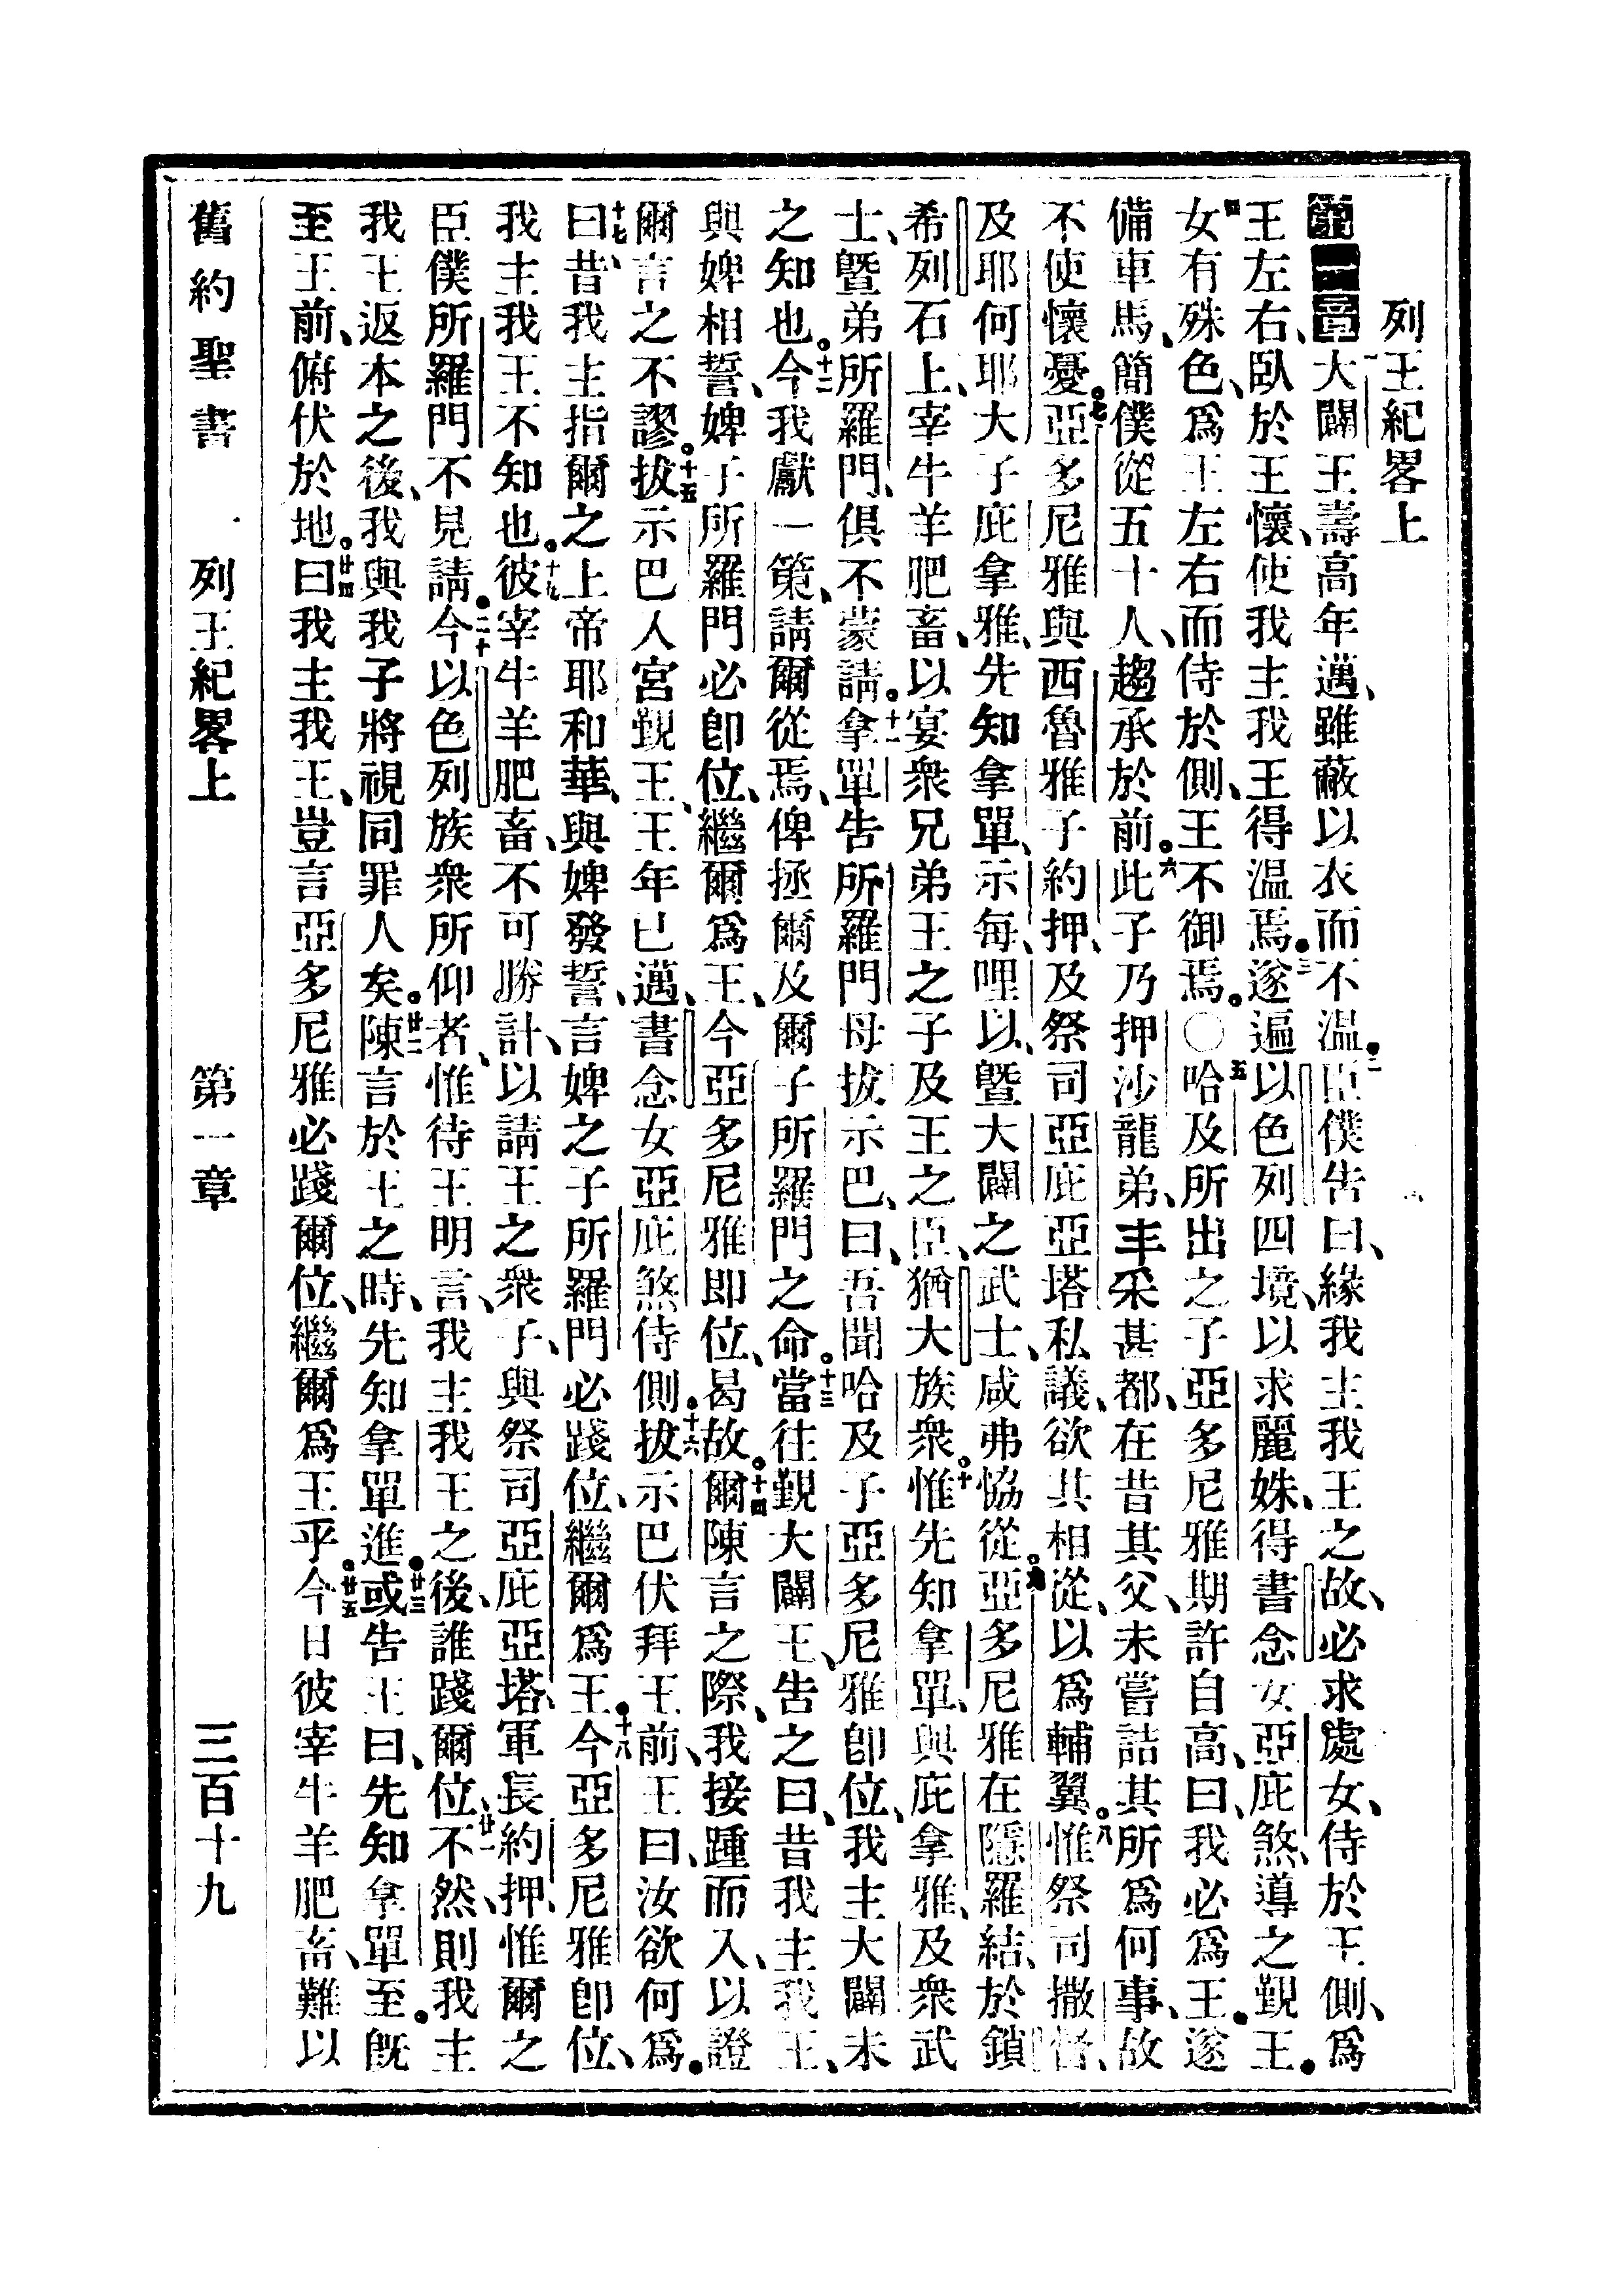 列王紀畧上
第一章大闢王壽高年邁、雖蔽以衣而不温。二臣僕告曰、緣我主我王之故、必求處女、侍於王側、爲
王左右、臥於王懷、使我主我王得温焉。三遂遍以色列四境、以求麗姝、得書念女亞庇煞、導之覲王。
四女有殊色、爲王左右而侍於側、王不御焉。○五哈及所出之子亞多尼雅期許自高、曰、我必爲王。遂
備車馬、簡僕從五十人、趨承於前。六此子乃押沙龍弟、丰采甚都、在昔其父、未嘗詰其所爲何事、故
不使懷憂。七亞多尼雅與西魯雅子約押、及祭司亞庇亞塔私議、欲其相從、以爲輔翼。八惟祭司撒督、
及耶何耶大子庇拿雅、先知拿單、示每、哩以、曁大闢之武士、咸弗恊從。九亞多尼雅在隱羅結、於鎖
希列石上、宰牛羊肥畜、以宴衆兄弟王之子及王之臣、猶大族衆。十惟先知拿單、與庇拿雅、及衆武
士、曁弟所羅門、俱不蒙請。十一拿單告所羅門母拔示巴、曰、吾聞哈及子亞多尼雅卽位、我主大闢未
之知也。十二今我獻一策、請爾從焉、俾拯爾及爾子所羅門之命。十三當往覲大闢王、告之曰、昔我主我王、
與婢相誓、婢子所羅門必卽位、繼爾爲王、今亞多尼雅即位、曷故。十四爾陳言之際、我接踵而入、以證
爾言之不謬。十五拔示巴入宮覲王、王年已邁、書念女亞庇煞侍側。十六拔示巴伏拜王前、王曰、汝欲何爲。
十七曰、昔我主指爾之上帝耶和華、與婢發誓、言婢之子所羅門必踐位、繼爾爲王。十八今亞多尼雅卽位、
我主我王不知也。十九彼宰牛羊肥畜、不可勝計、以請王之衆子、與祭司亞庇亞塔、軍長約押、惟爾之
臣僕所羅門不見請。二十今以色列族衆所仰者、惟待王明言、我主我王之後、誰踐爾位、廿一不然、則我主
我王返本之後、我與我子將視同罪人矣。廿二陳言於王之時、先知拿單進。廿三或告王曰、先知拿單至。旣
至王前、俯伏於地。廿四曰我主我王、豈言亞多尼雅必踐爾位、繼爾爲王乎。廿五今日彼宰牛羊肥畜、難以
舊約聖書 列王紀畧上 第一章 三百十九